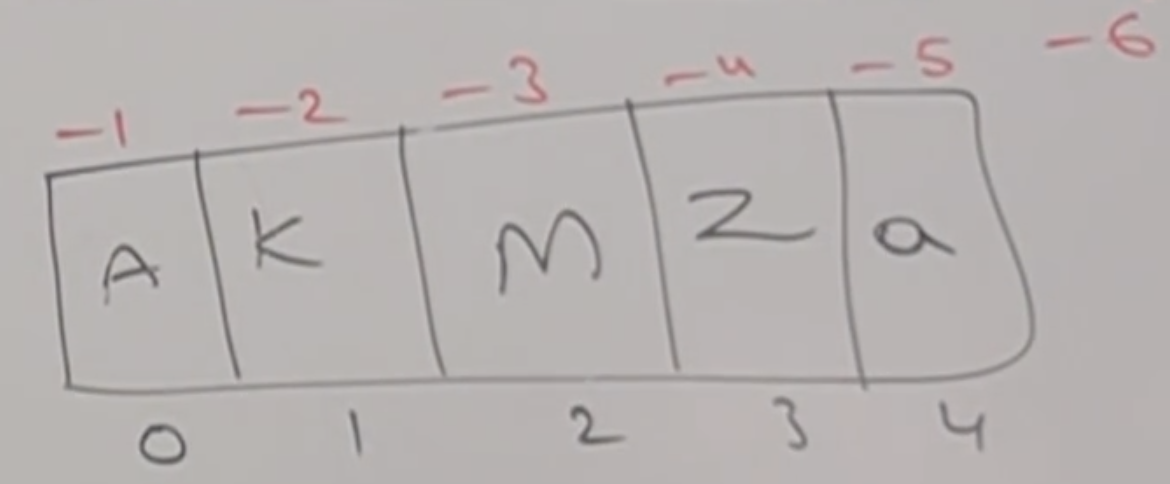 -1 -2 -3 -4 -5 -6
A K M Z a
0 1 2 3 4